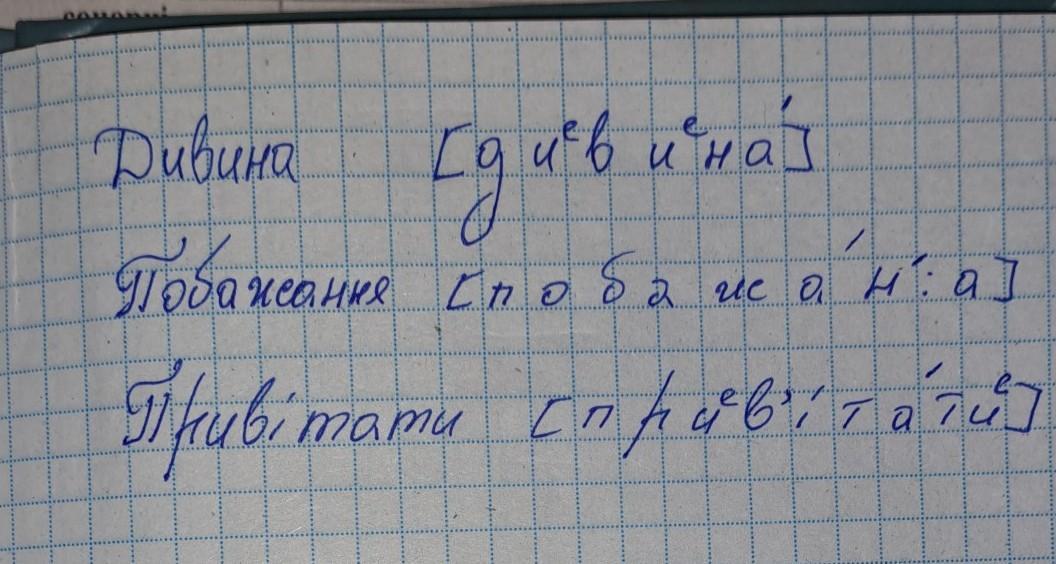 Дивина [диᵉвиᵉна́]
Побажання [побажа́н':а]
Привітати [приᵉв'іта́тиᵉ]